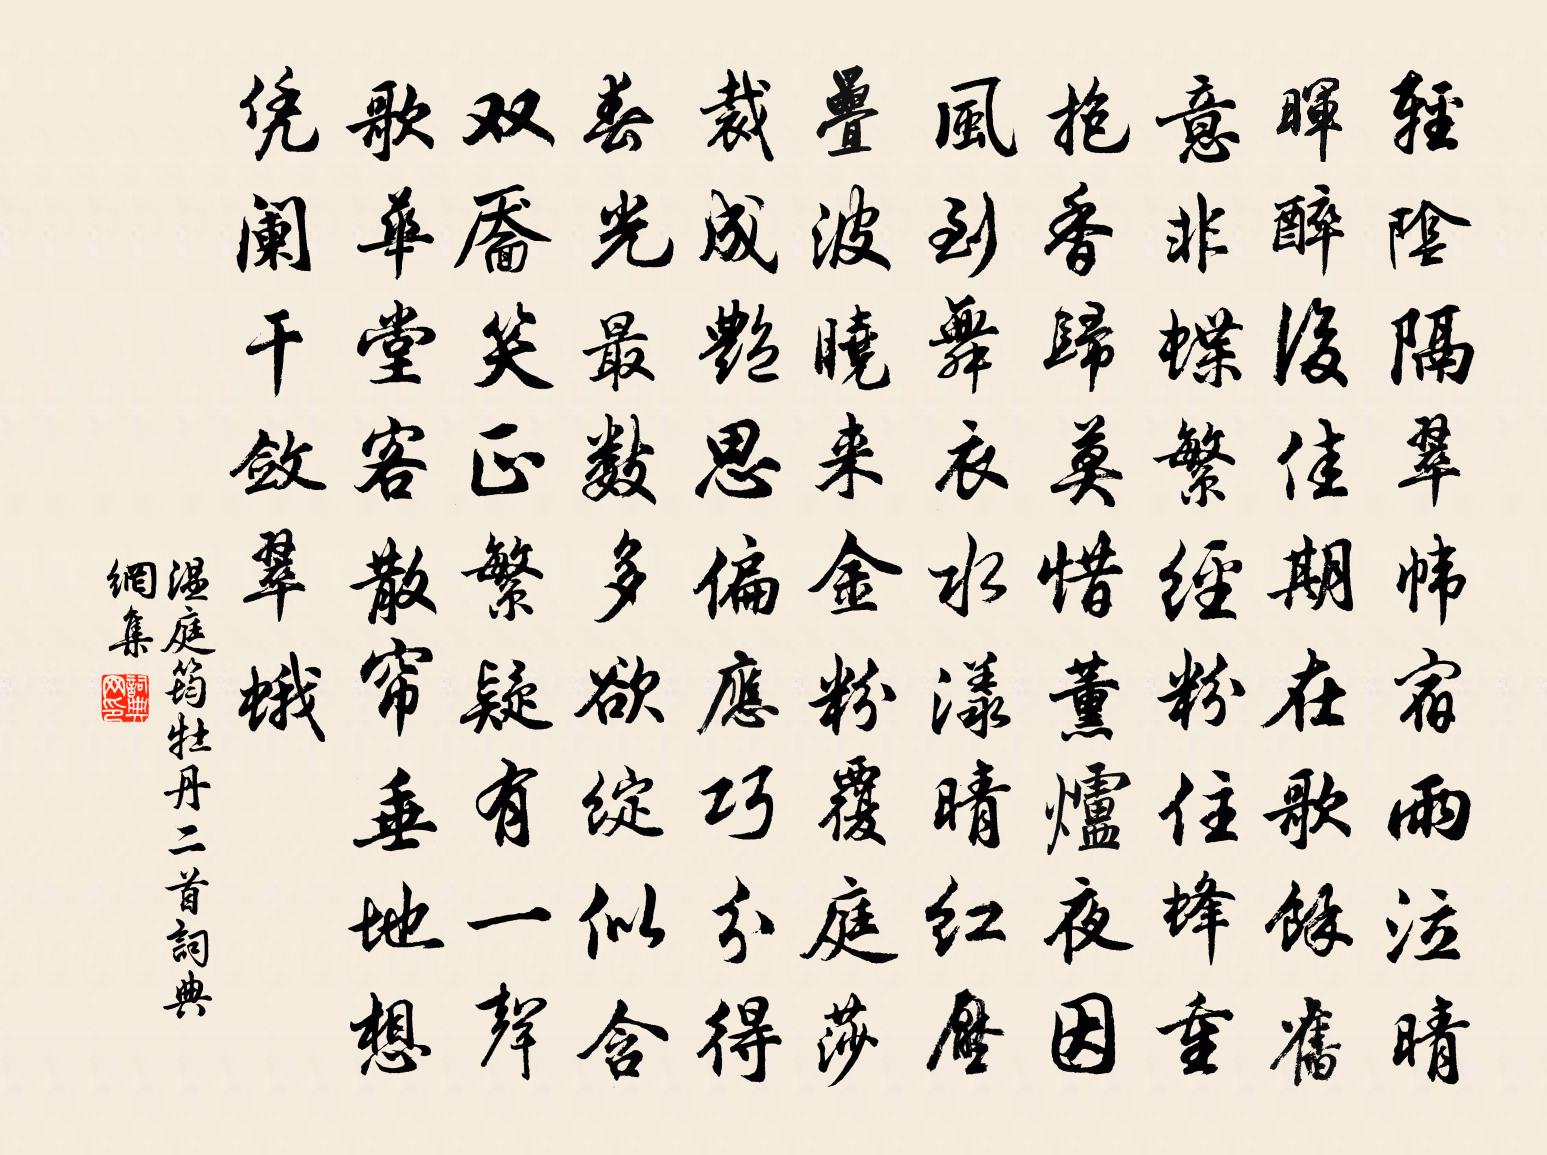 輕陰隔翠幃宿雨泣晴
暉醉後佳期在歌餘舊
意非蝶繁經粉住蜂重
抱香歸莫惜薰爐夜因
風到舞衣水漾晴紅壓
疊波曉来金粉覆庭莎
裁成艷思偏應巧分得
春光最數多欲綻似含
双靨笑正繁疑有一聲
歌華堂客散帘垂地想
凭阑干斂翠蛾
温庭筠牡丹二首詞典
網集
詞典网印